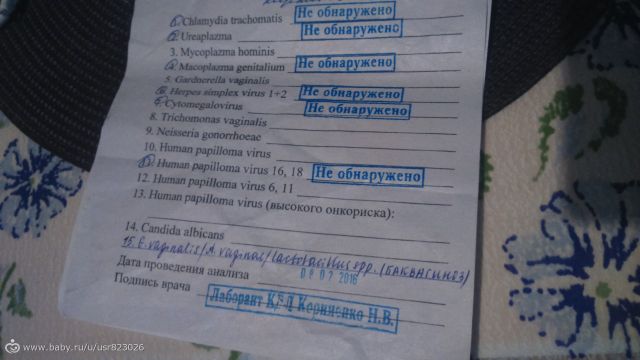 1. Chlamydia trachomatis Не обнаружено
2. Ureaplazma Не обнаружено
3. Mycoplazma hominis
4. Macoplazma genitalium Не обнаружено
5. Gardnerella vaginalis
6. Herpes simplex virus 1+2 Не обнаружено
7. Cytomegalovirus Не обнаружено
8. Trichomonas vaginalis
9. Neisseria gonorrhoeae
10. Human papilloma virus
11. Human papilloma virus 16, 18 Не обнаружено
12. Human papilloma virus 6, 11
13. Human papilloma virus (высокого онкориска):
14. Candida albicans
15. G. vaginalis/A. vaginae/Lactobacillus spp. (БАКВАГИНОЗ)
Дата проведения анализа 08 07 2016
Подпись врача Лаборант КДЛ Корниенко Н.В.
www.baby.ru/u/usr823026